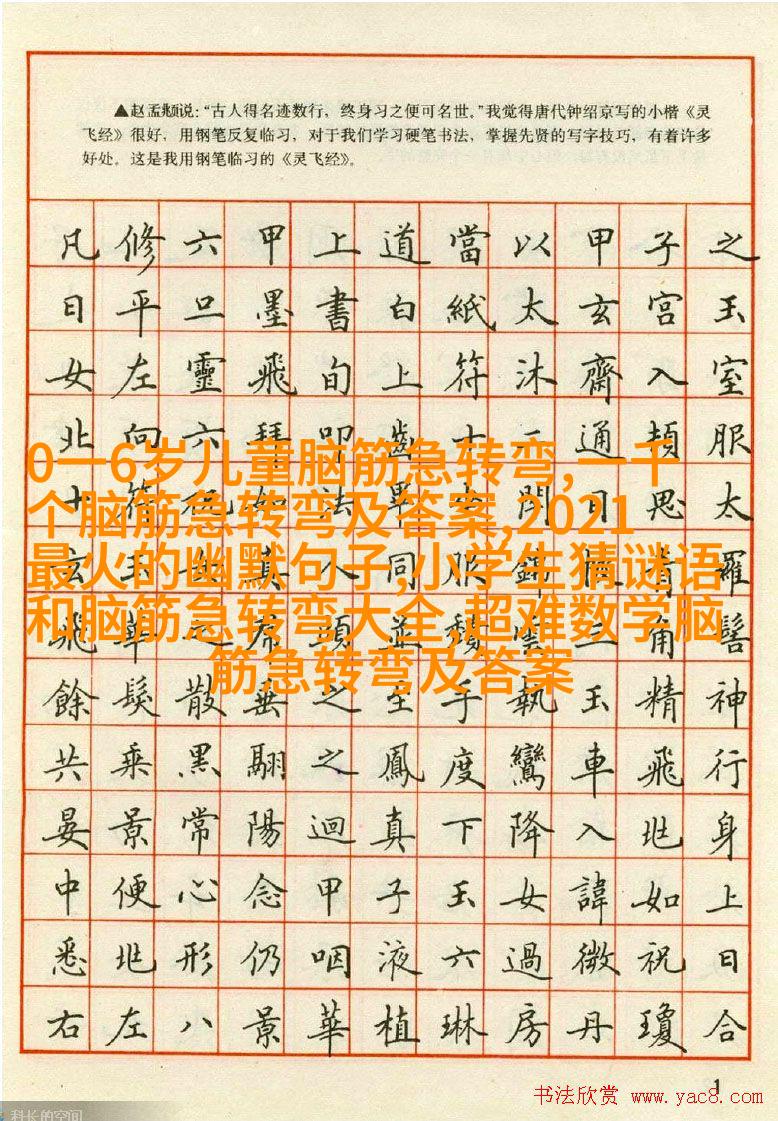 ▲赵孟頫说：“古人得名迹数行，终身习之便可名世。”我觉得唐代钟绍京写的小楷《灵
飞经》很好，用钢笔反复临习，对于我们学习硬笔书法，掌握先贤的写字技巧，有着许多
好处。这是我用钢笔临习的《灵飞经》。
凡修六甲上道當以甲子之
日平旦墨書白紙太玄宮玉
女左靈飛旬上符沐齋入室
北向六拜叩齒十二通頓服
十符祝如法畢閉目思太
玄玉女真人同服錦羅
飛華之頭並雲三角髻
餘髮散垂之至手執玉精神
共乘黑翮之鳳度鸞車飛行
晏景常陽迴真下降入兆身
中便心念甲子玉女諱如上
悉兆形仍咽液六過微祝日
右左八景華植琳房丹瓊合
0一6岁儿童脑筋急转弯,一千
个脑筋急转弯及答案,2021
最火的幽默句子,小学生猜谜语
和脑筋急转弯大全,超难数学脑
筋急转弯及答案
1
书法欣赏 www.yac8.com
科长的空间